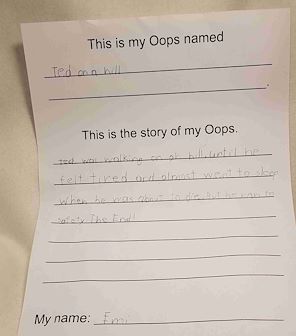 This is my Oops named
Ted on a hill
This is the story of my Oops.
Ted was walking on a hill, until he
felt tired and almost went to sleep
when he was about to die, but he ran to
safety The End!
My name: Emi